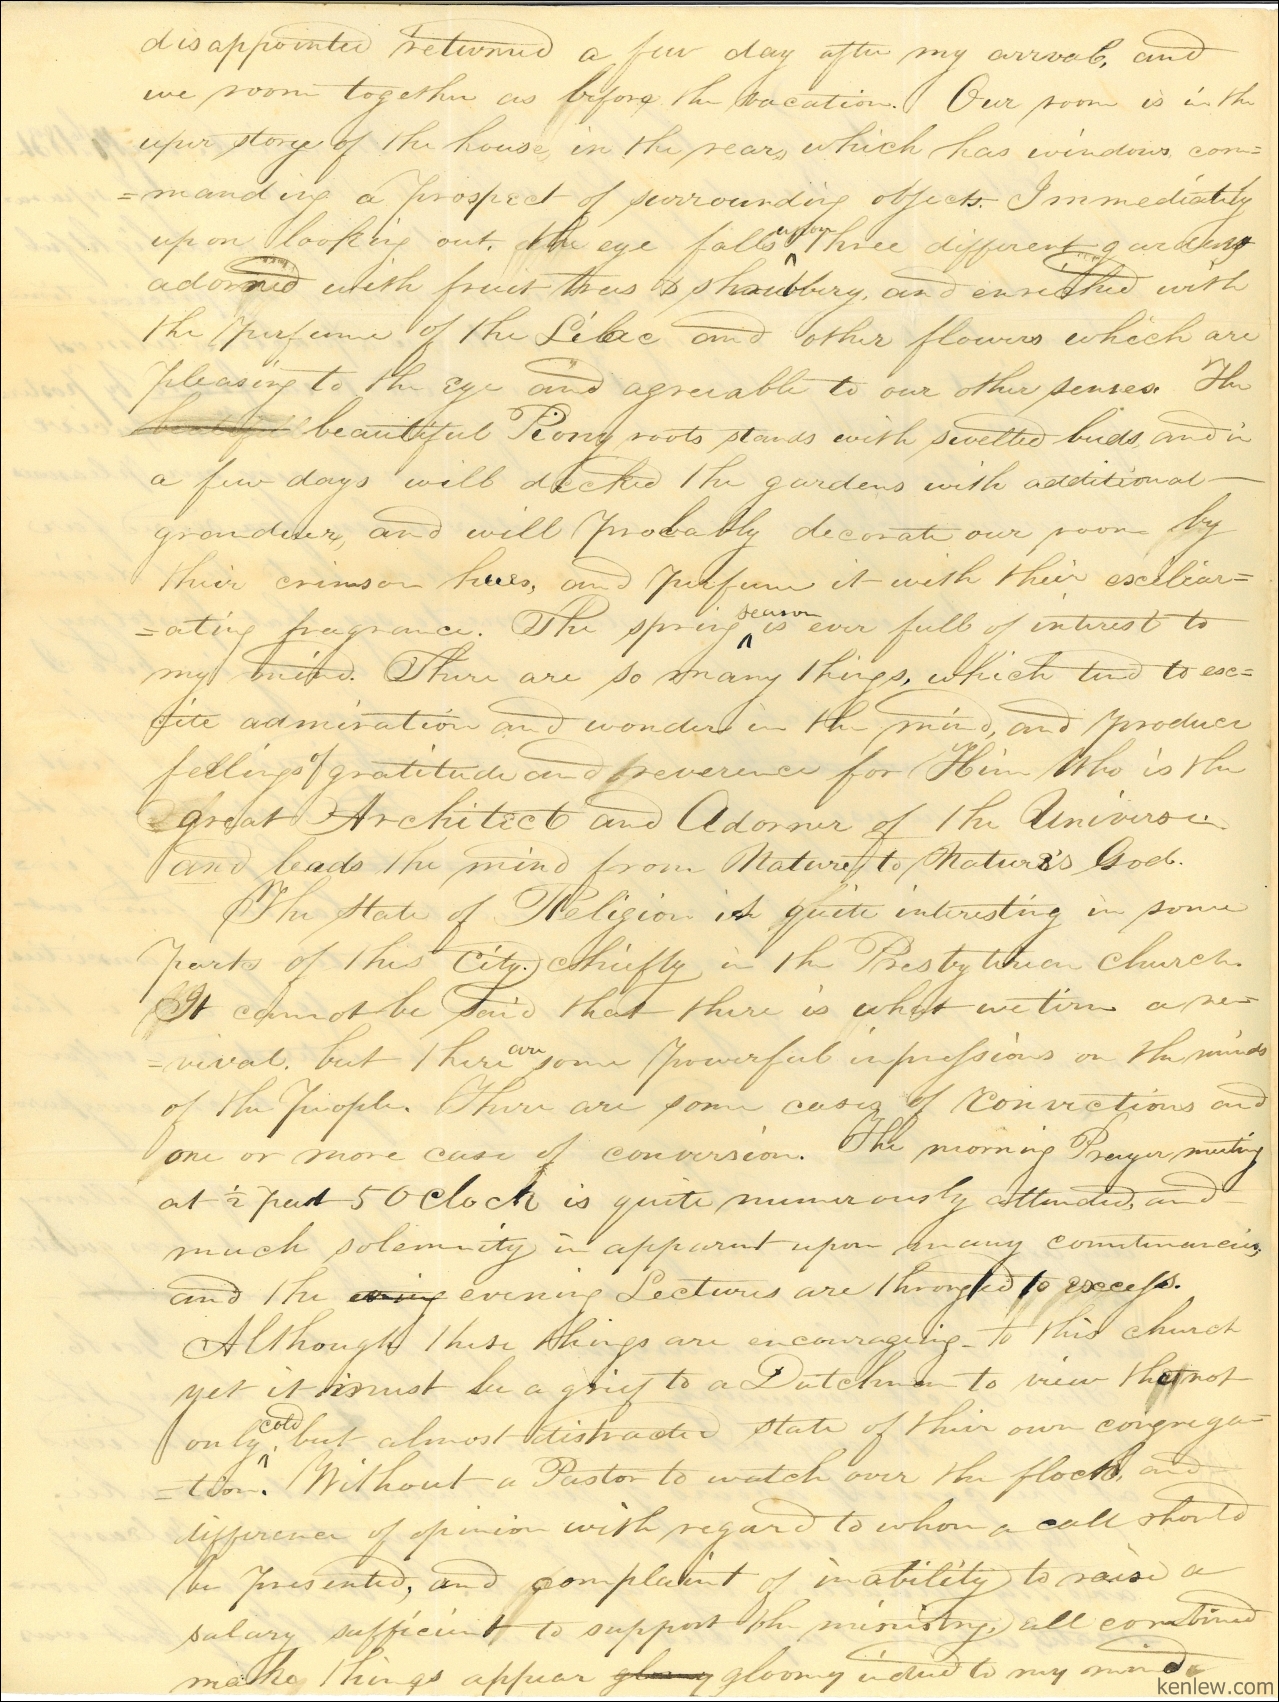 disappointed returned a few day after my arrival, and
we room together as before the vacation. Our room is in the
uper story of the house, in the rear, which has windows com=
=manding a prospect of surrounding objects. Immediately
upon looking out, the eye falls upon three different gardens
adorned with fruit trees & shrubbery, and enriched with
the perfume of the Lilac and other flowers which are
pleasing to the eye and agreeable to our other senses. The
beautiful beautiful Piony roots stands with swelled buds, and in
a few days will decked the gardens with additional
granduer, and will probably decorate our room by
their crimson hues, and perfume it with their exciliar=
=ating fragrance. The spring season is ever full of interest to
my mind. There are so many things, which tend to exc=
cite admiration and wonder in the mind, and produce
feelings of gratitude and reverence for Him Who is the
great Architect and Adorner of the Universe
and leads the mind from Nature, to Nature's God.
The state of Religion is quite interesting in some
parts of this City. chiefly in the Presbyterian church.
It cannot be said that there is what we term a re=
=vival. but there are some powerful inpressions on the minds
of the People. There are some cases of convictions and
one or more case of conversion. The morning Prayer meeting
at ½ past 5 O Clock is quite numerously attended, and
much solemnity in apparent upon many countinancies,
and the evning evening Lectures are thronged to excess.
Although these things are encouraging to this church
yet it must be a grief to a Dutchman to view the not
only cold, but almost distracted state of their own congrega=
=tion. Without a Pastor to watch over the flock, and
difference of opinion with regard to whom a call should
be presented, and complaint of inability to raise a
salary sufficient to support the ministry, all combined
make things appear gloomy gloomy indeed to my mind.
kenlew.com